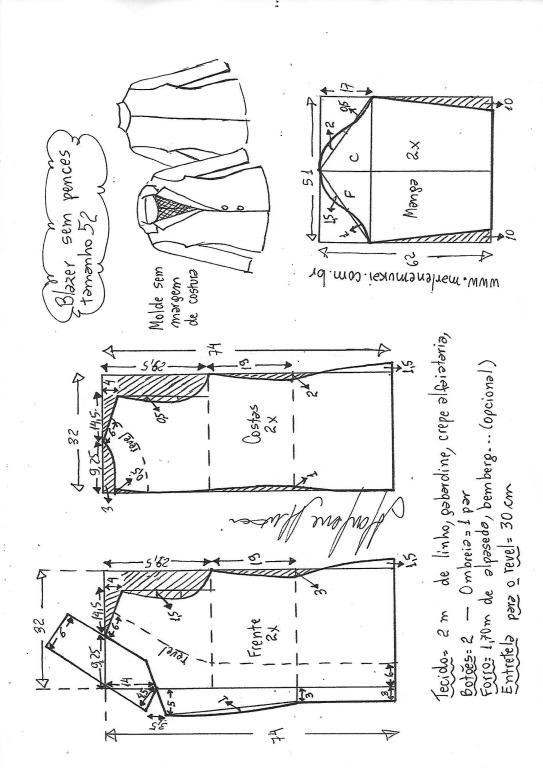 Blazer sem pences
tamanho 52
Molde sem
margem
de costura
51
17
2
0,5
1,5
2
F
C
Manga 2x
62
10
10
www.marlenemukai.com.br
32
9,25
14,5
4
29,5
19
74
3
0,5
6
revel
0,5
Costas
2x
2
1
1,5
32
9,25
14,5
4
29,5
19
74
6
6
14
4,5
5
revel
1,5
Frente
2x
3
1
3
8
6
1,5
Tecido= 2 m de linho, gabardine, crepe alfaiataria,
Botões= 2 - Ombreia= 1 par
Forro= 1,70m de alpaseda, bemberg... (opcional)
Entretela para o revel= 30 cm